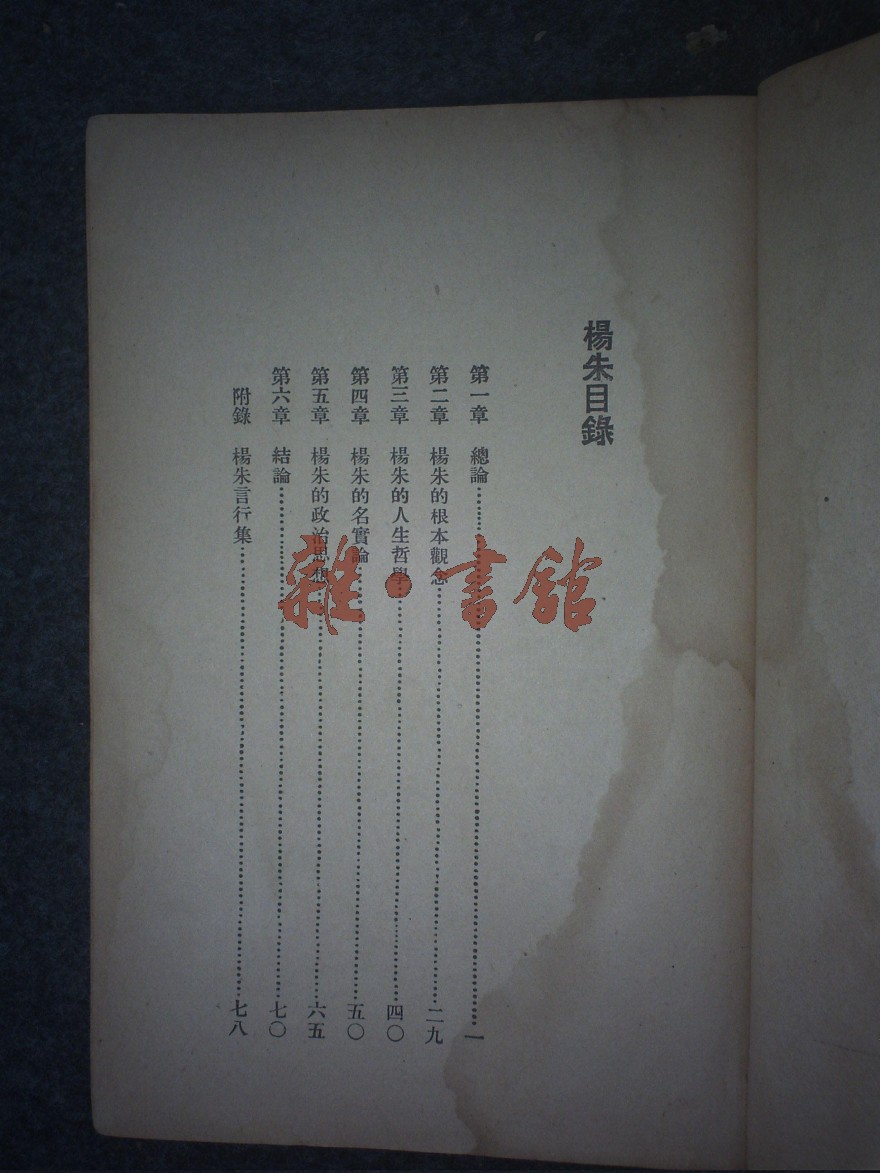 楊朱目錄
第一章 總論…………一
第二章 楊朱的根本觀念…………二九
第三章 楊朱的人生哲學…………四〇
第四章 楊朱的名實論…………五〇
第五章 楊朱的政治思想…………六五
第六章 結論…………七〇
附錄 楊朱言行集…………七八
雜·書館